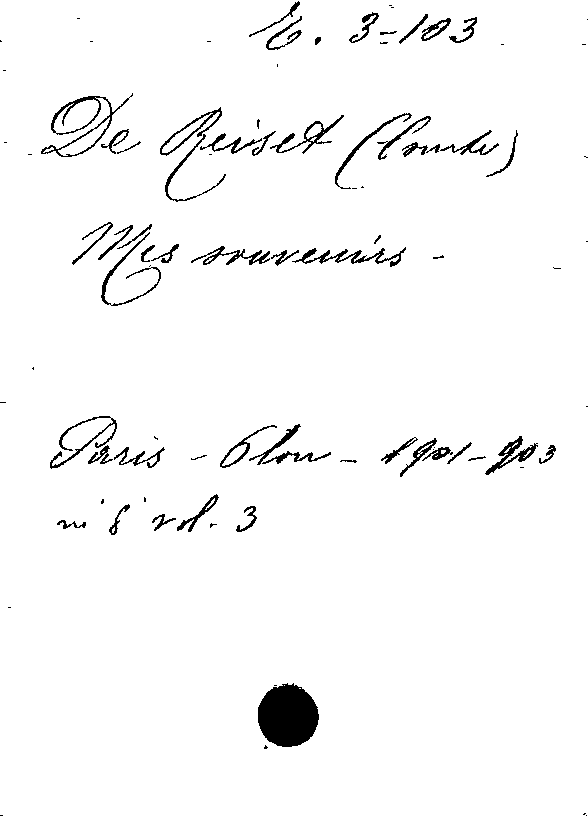 E. 3=103
De Reiset (Comte)
Mes souvenirs -
Paris - Plon - 1901-903
in 8° vol. 3